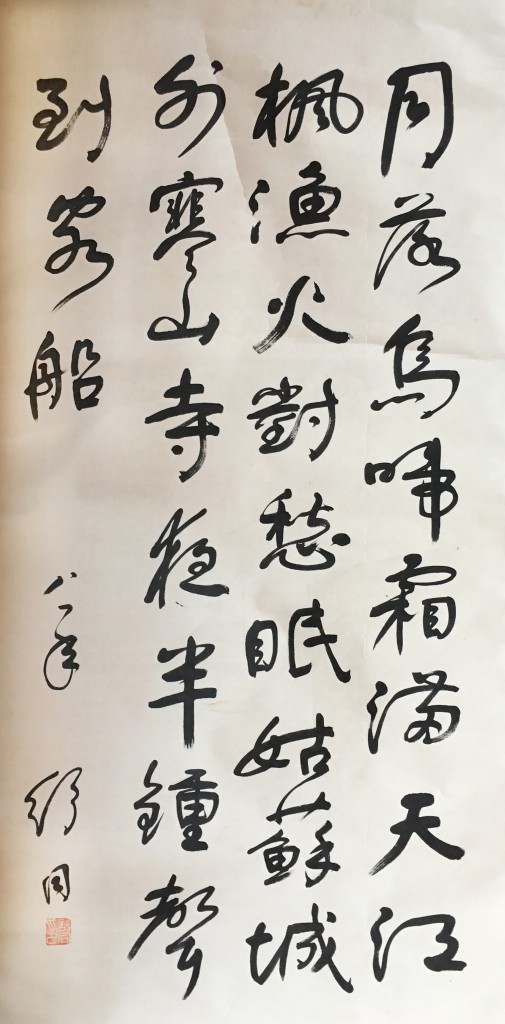 月落烏啼霜滿天江
楓漁火對愁眠姑蘇城
外寒山寺夜半鍾聲
到客船 八一年 舒同